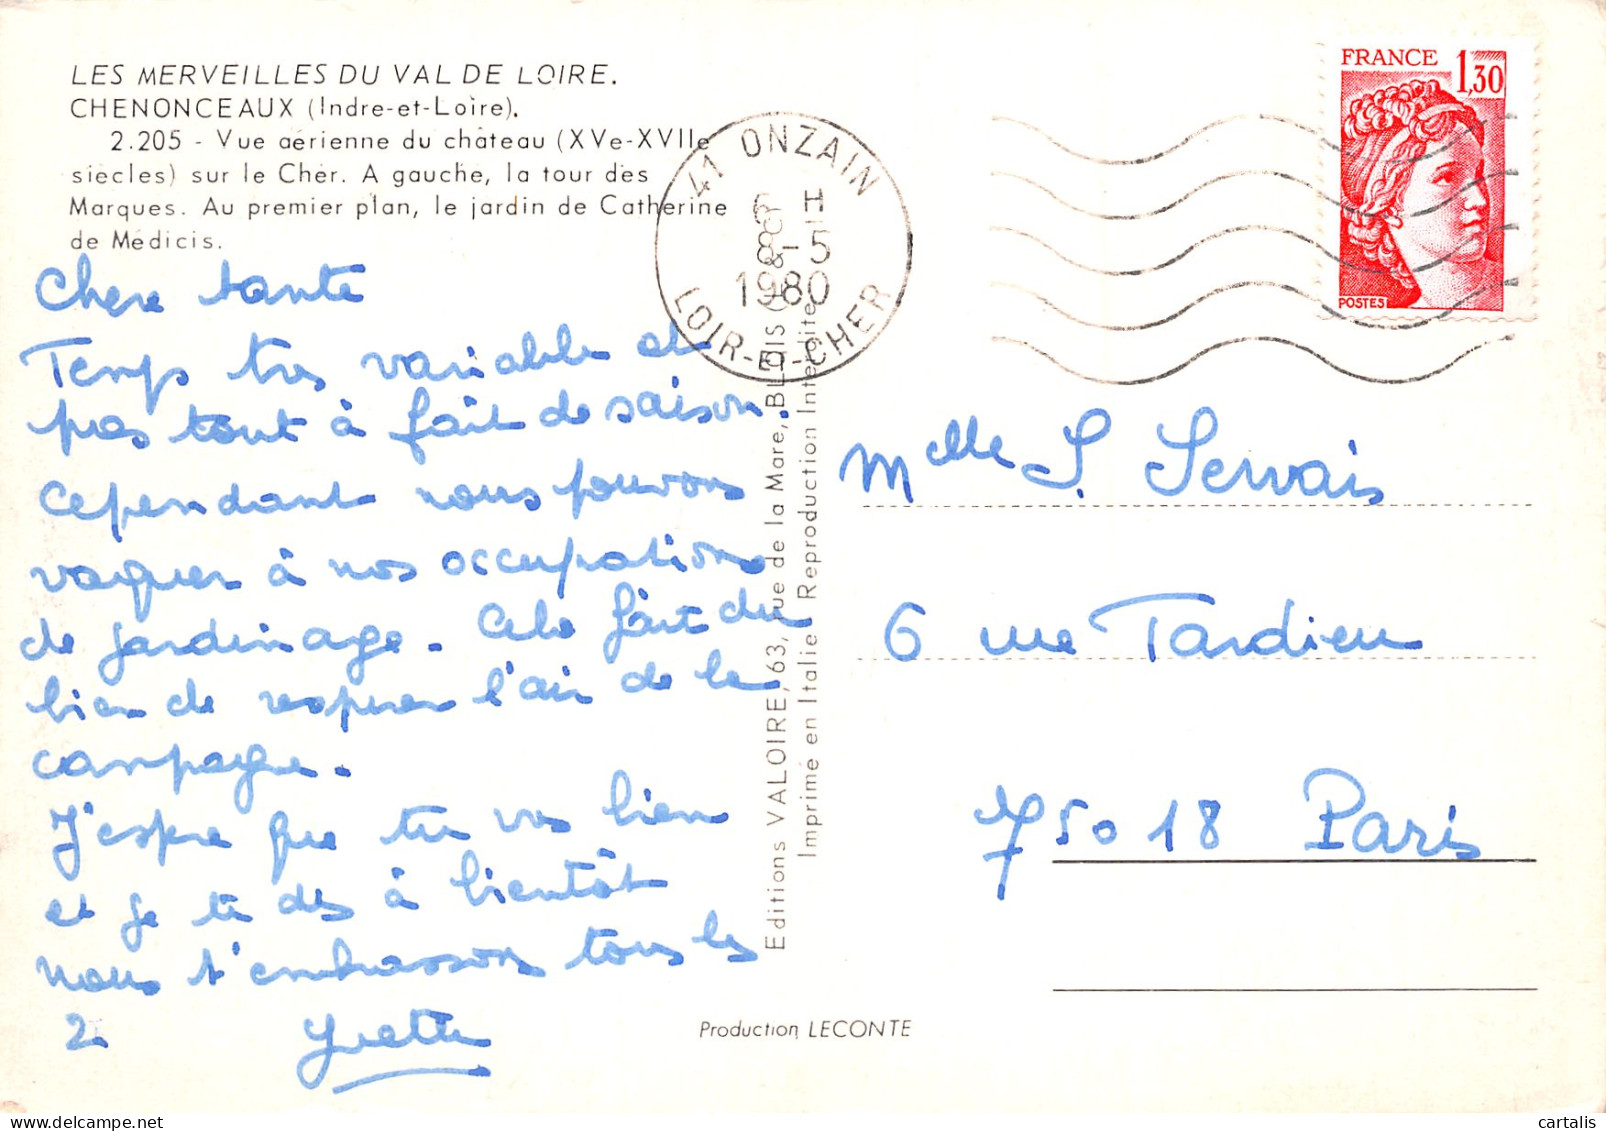 LES MERVEILLES DU VAL DE LOIRE.
CHENONCEAUX (Indre-et-Loire).
2.205 - Vue aérienne du château (XVe-XVIIe
siècles) sur le Cher. A gauche, la tour des
Marques. Au premier plan, le jardin de Catherine
de Médicis.
41 ONZAIN
H
8-5
1980
LOIR-ET-CHER
FRANCE 1,30
POSTES
Chere tante
Temps tres variable et
pas tout à fait de saison.
Cependant nous pouvons
vaquer à nos occupations
de jardinage. Cela fait du
bien de respirer l'air de la
campagne.
J'espre que tu vas bien
et je te dis à bientôt
Nous t'embrassons tous les
2. Yvette
Editions VALOIRE, 63, rue de la Mare, BLOIS
Imprimé en Italie Reproduction Interdite
Melle S. Servais
6 rue Tardieu
75018 Paris
Production LECONTE
cartalis